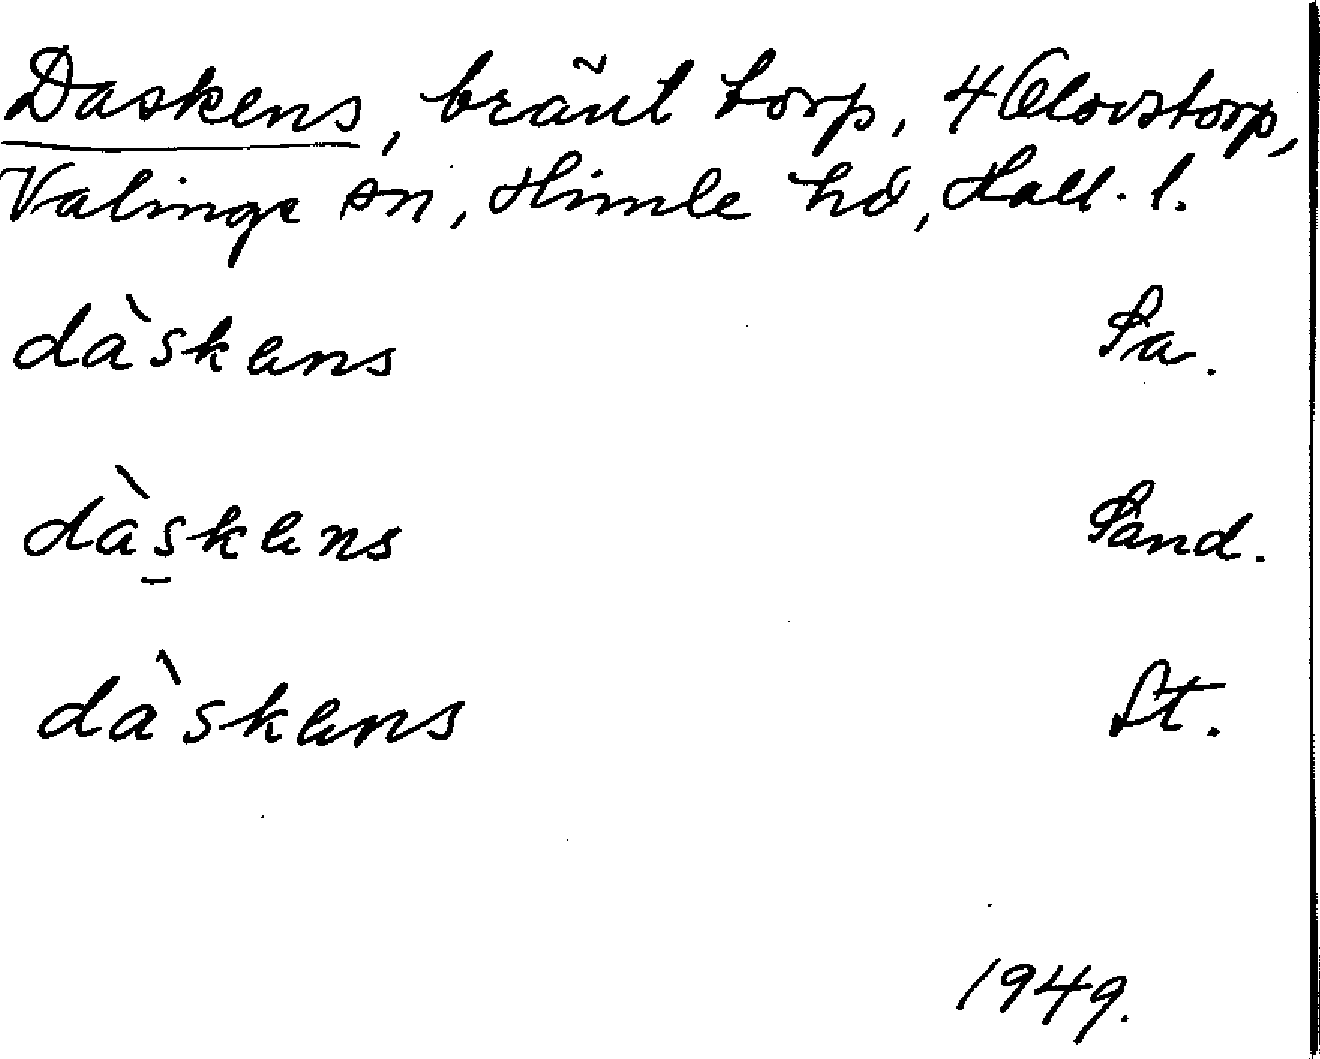 Daskens, bränt torp, 4 Olovstorp,
Valinge sn, Himle hd, Hall. l.
dàskans Sa.
dàskens Sand.
dàskens St.
1949.